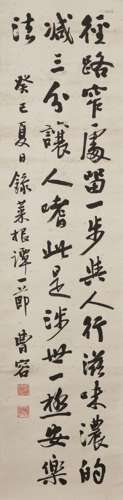 徑路窄處留一步與人行滋味濃的
減三分讓人嗜此是涉世一極安樂
法 癸巳夏日錄菜根譚一節 曹容